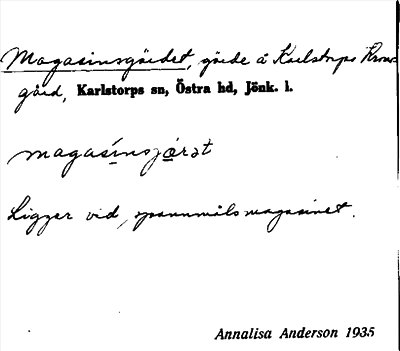 Magasinsgärdet, gärde å Karlstorps Krono
gård, Karlstorps sn, Östra hd, Jönk. l.
magasinsjæ̱rət
Ligger vid spannmålsmagasinet.
Annalisa Anderson 1935